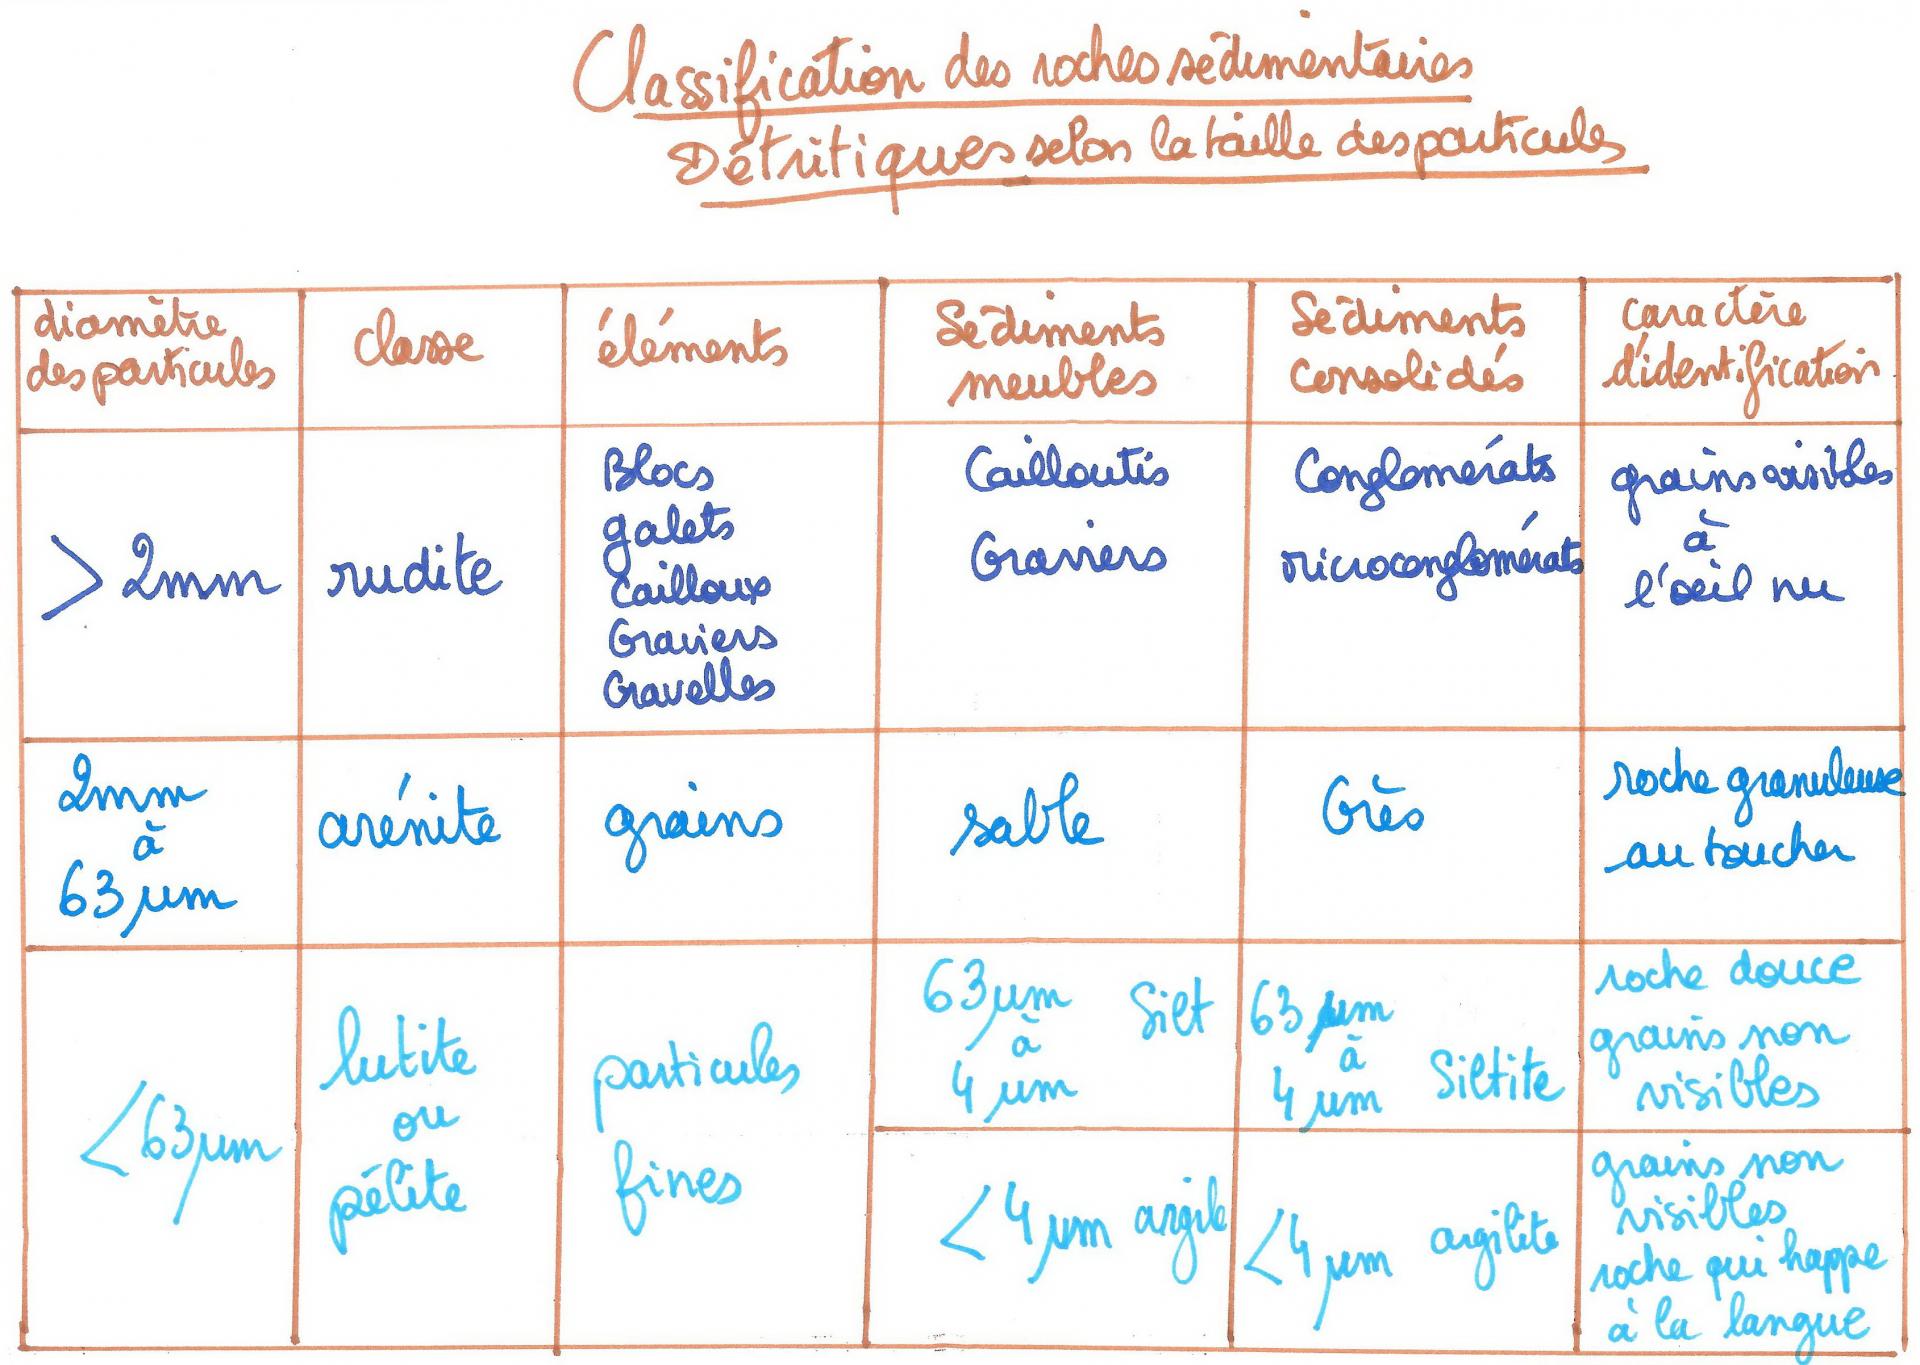 Classification des roches sédimentaires
Détritiques selon la taille des particules
diamètre
des particules
classe
éléments
Sédiments
meubles
Sédiments
consolidés
caractère
d'identification
> 2mm
rudite
Blocs
galets
Cailloux
Graviers
Gravelles
Cailloutis
Graviers
Conglomérats
microconglomérats
grains visibles
à
l'oeil nu
2mm
à
63 µm
arénite
grains
sable
Grès
roche granuleuse
au toucher
< 63 µm
lutite
ou
pélite
particules
fines
63 µm
à
4 µm
Silt
63 µm
à
4 µm
Siltite
roche douce
grains non
visibles
< 4 µm argile
< 4 µm argilite
grains non
visibles
roche qui happe
à la langue